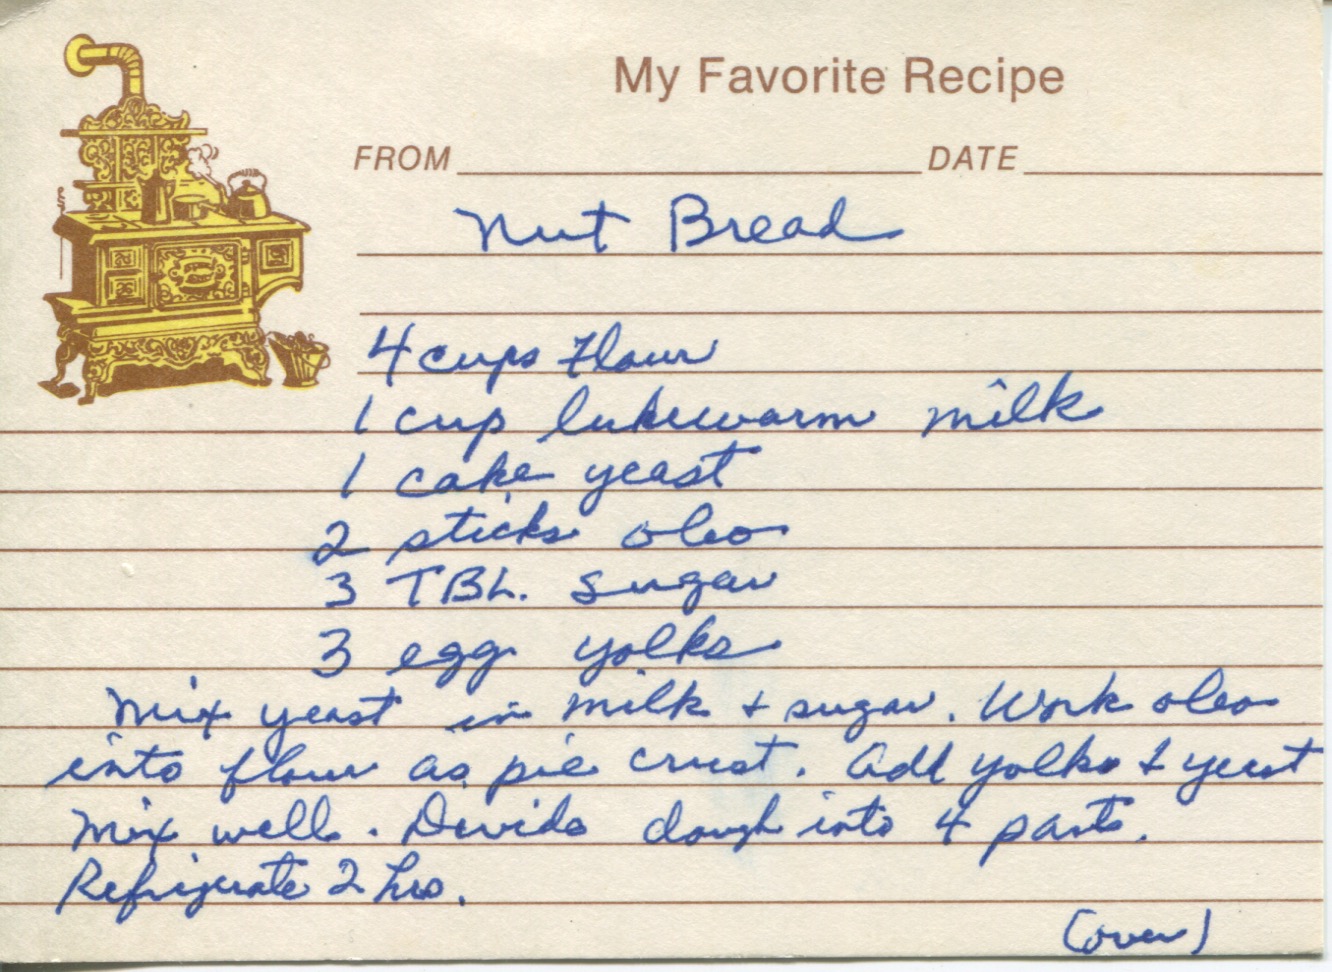 My Favorite Recipe
FROM DATE
Nut Bread
4 cups Flour
1 cup lukewarm milk
1 cake yeast
2 sticks oleo
3 TBL. sugar
3 egg yolks
Mix yeast in milk + sugar. Work oleo
into flour as pie crust. Add yolks + yeast
Mix well. Devide dough into 4 parts.
Refrigerate 2 hrs.
(over)